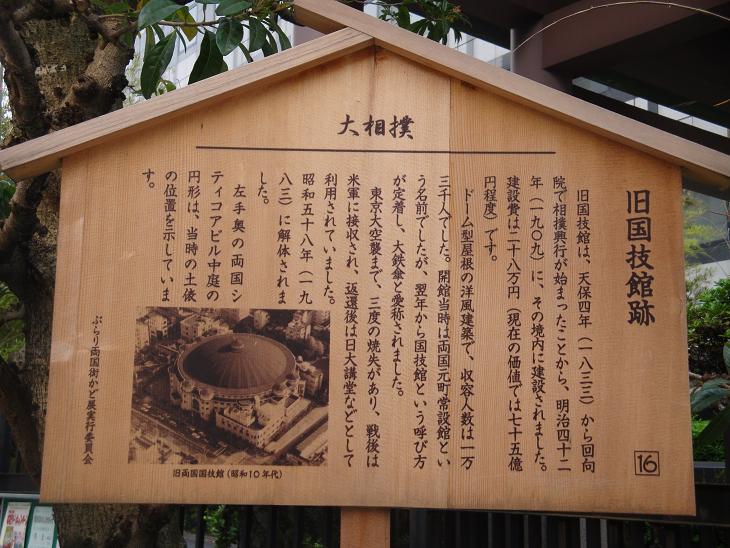 大相撲
旧国技館跡
旧国技館は、天保四年（一八三三）から回向
院で相撲興行が始まったことから、明治四十二
年（一九〇九）に、その境内に建設されました。
建設費は二十八万円（現在の価値では七十五億
円程度）です。
ドーム型屋根の洋風建築で、収容人数は一万
三千人でした。開館当時は両国元町常設館とい
う名前でしたが、翌年から国技館という呼び方
が定着し、大鉄傘と愛称されました。
東京大空襲まで、三度の焼失があり、戦後は
米軍に接収され、返還後は日大講堂などとして
利用されていました。
昭和五十八年（一九
八三）に解体されま
した。
左手奥の両国シ
ティコアビル中庭の
円形は、当時の土俵
の位置を示していま
す。
旧両国国技館（昭和10年代）
ぶらり両国街かど展実行委員会
16